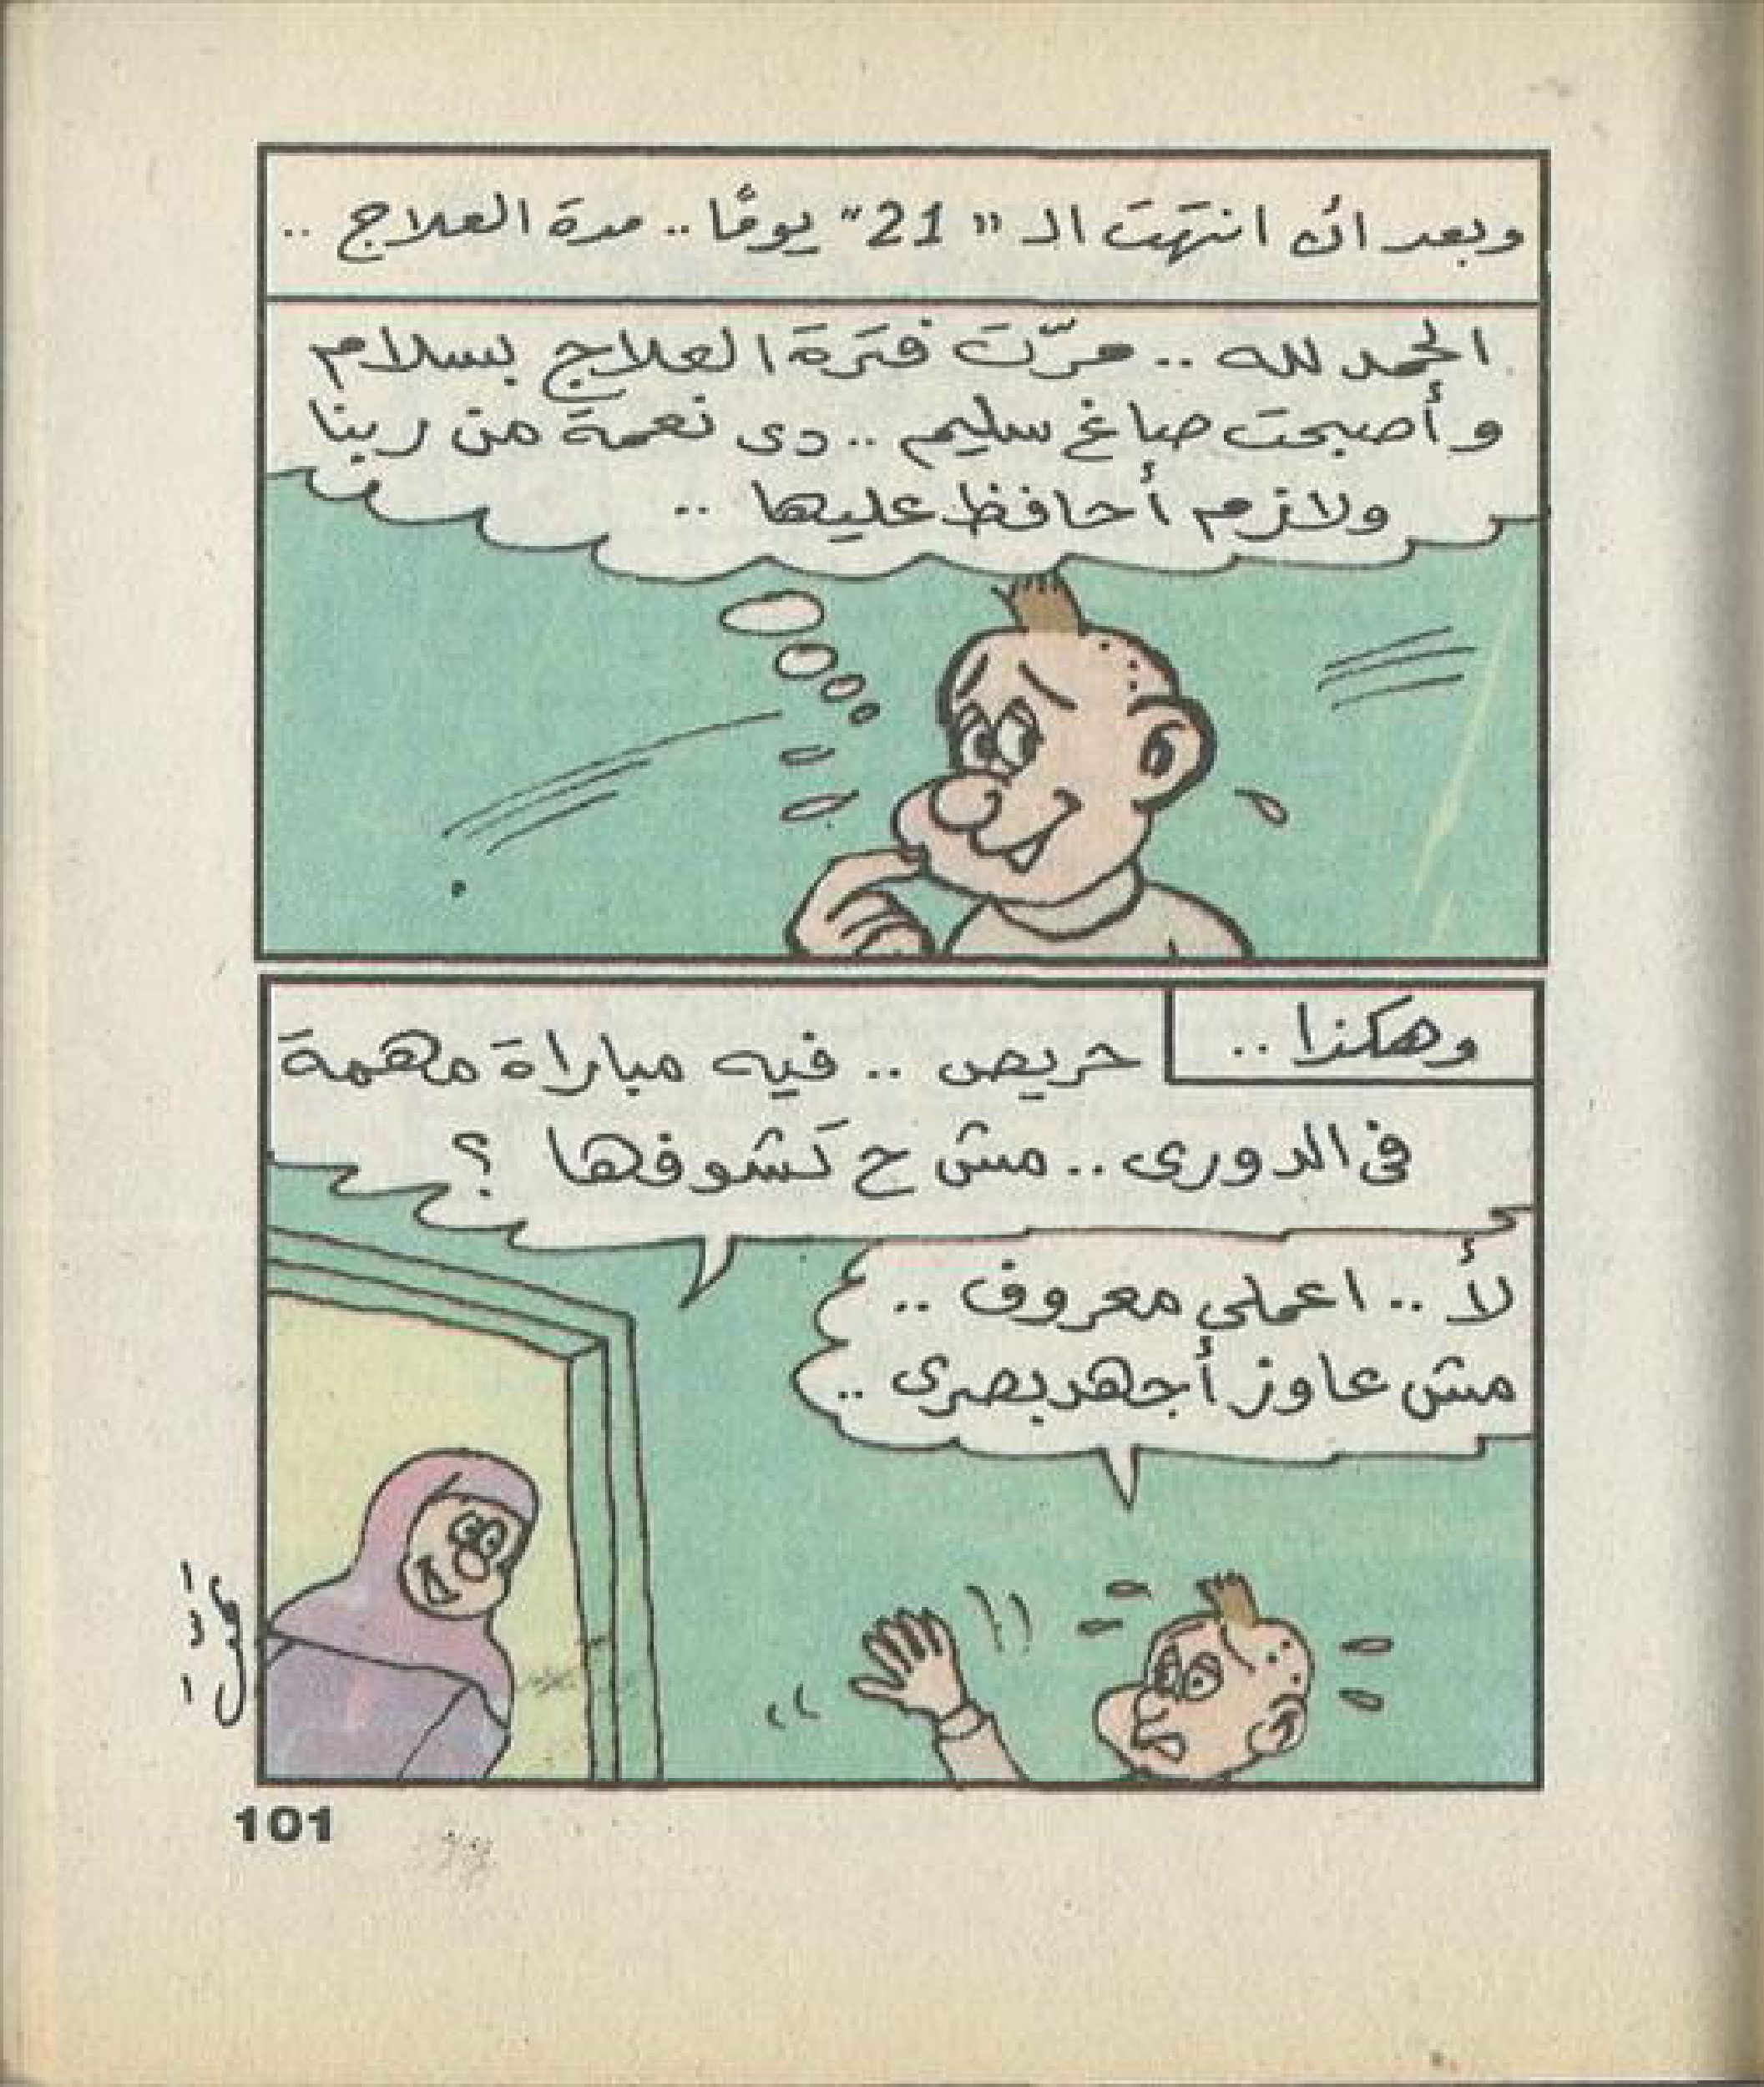 وبعد أن انتهت الـ "21" يومًا .. مدة العلاج ..
الحمد لله .. مرّت فترة العلاج بسلام
وأصبحت صاغ سليم .. دى نعمة من ربنا
ولازم أحافظ عليها ..
وهكذا ..
حريص .. فيه مباراة مهمة
فى الدورى .. مش ح تشوفها ؟
لأ .. اعملي معروف ..
مش عاوز أجهد بصرى ..
101